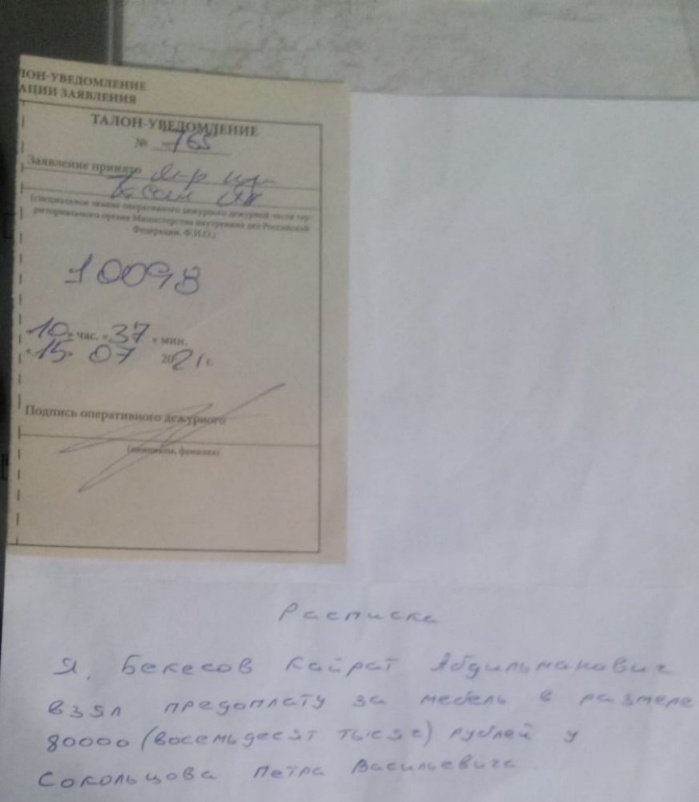 ЛОН-УВЕДОМЛЕНИЕ
АЦИИ ЗАЯВЛЕНИЯ
ТАЛОН-УВЕДОМЛЕНИЕ
№ 765
Заявление принято
(специальное звание оперативного дежурного дежурной части тер-
риториального органа Министерства внутренних дел Российской
Федерации. Ф.И.О.)
10098
«10» час. «37» мин.
«15» 07 2021 г.
Подпись оперативного дежурного
(инициалы, фамилия)
Расписка
Я, Бекесов Кайрат Абдильманович
взял предоплату за мебель в размере
80000 (восемьдесят тысяч) рублей у
Сокольцова Петра Васильевича